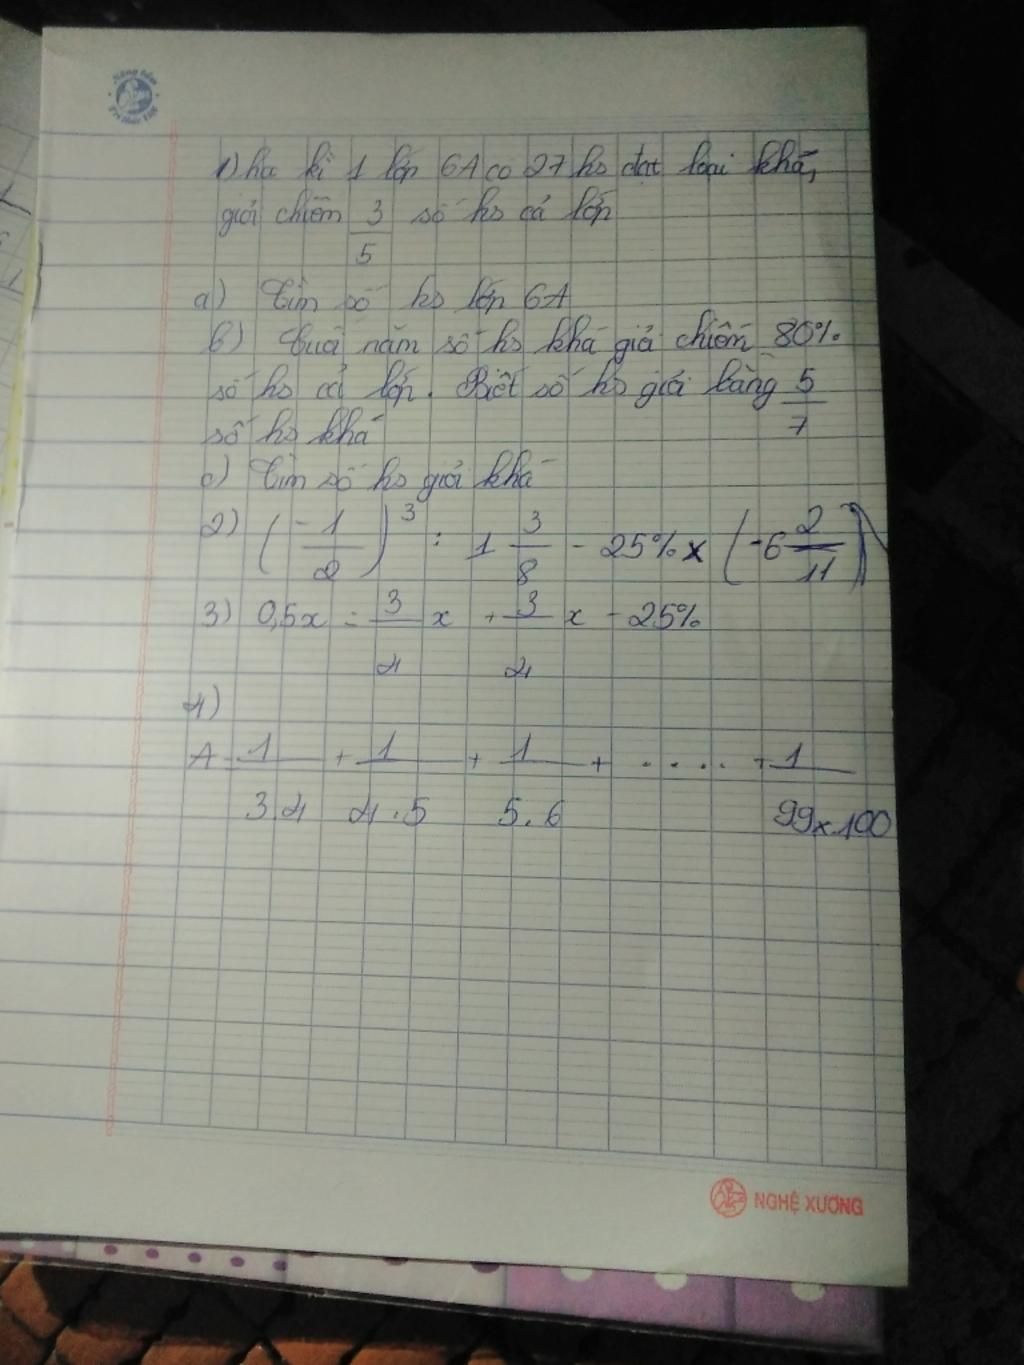 1) học kì 1 lớp 6A có 27 hs đạt loại khá,
giỏi chiếm 3/5 số hs cả lớp
a) Tìm số hs lớp 6A
b) Cuối năm số hs khá giỏi chiếm 80%
số hs cả lớp. Biết số hs giỏi bằng 5/7
số hs khá
c) Tìm số hs giỏi khá
2) (-1/2)^3 : 1 3/8 - 25% x (-6 2/11)
3) 0,5x = 3/4 x + 3/4 x - 25%
4)
A = 1/3.4 + 1/4.5 + 1/5.6 + ..... + 1/99x100
NGHỆ XƯƠNG